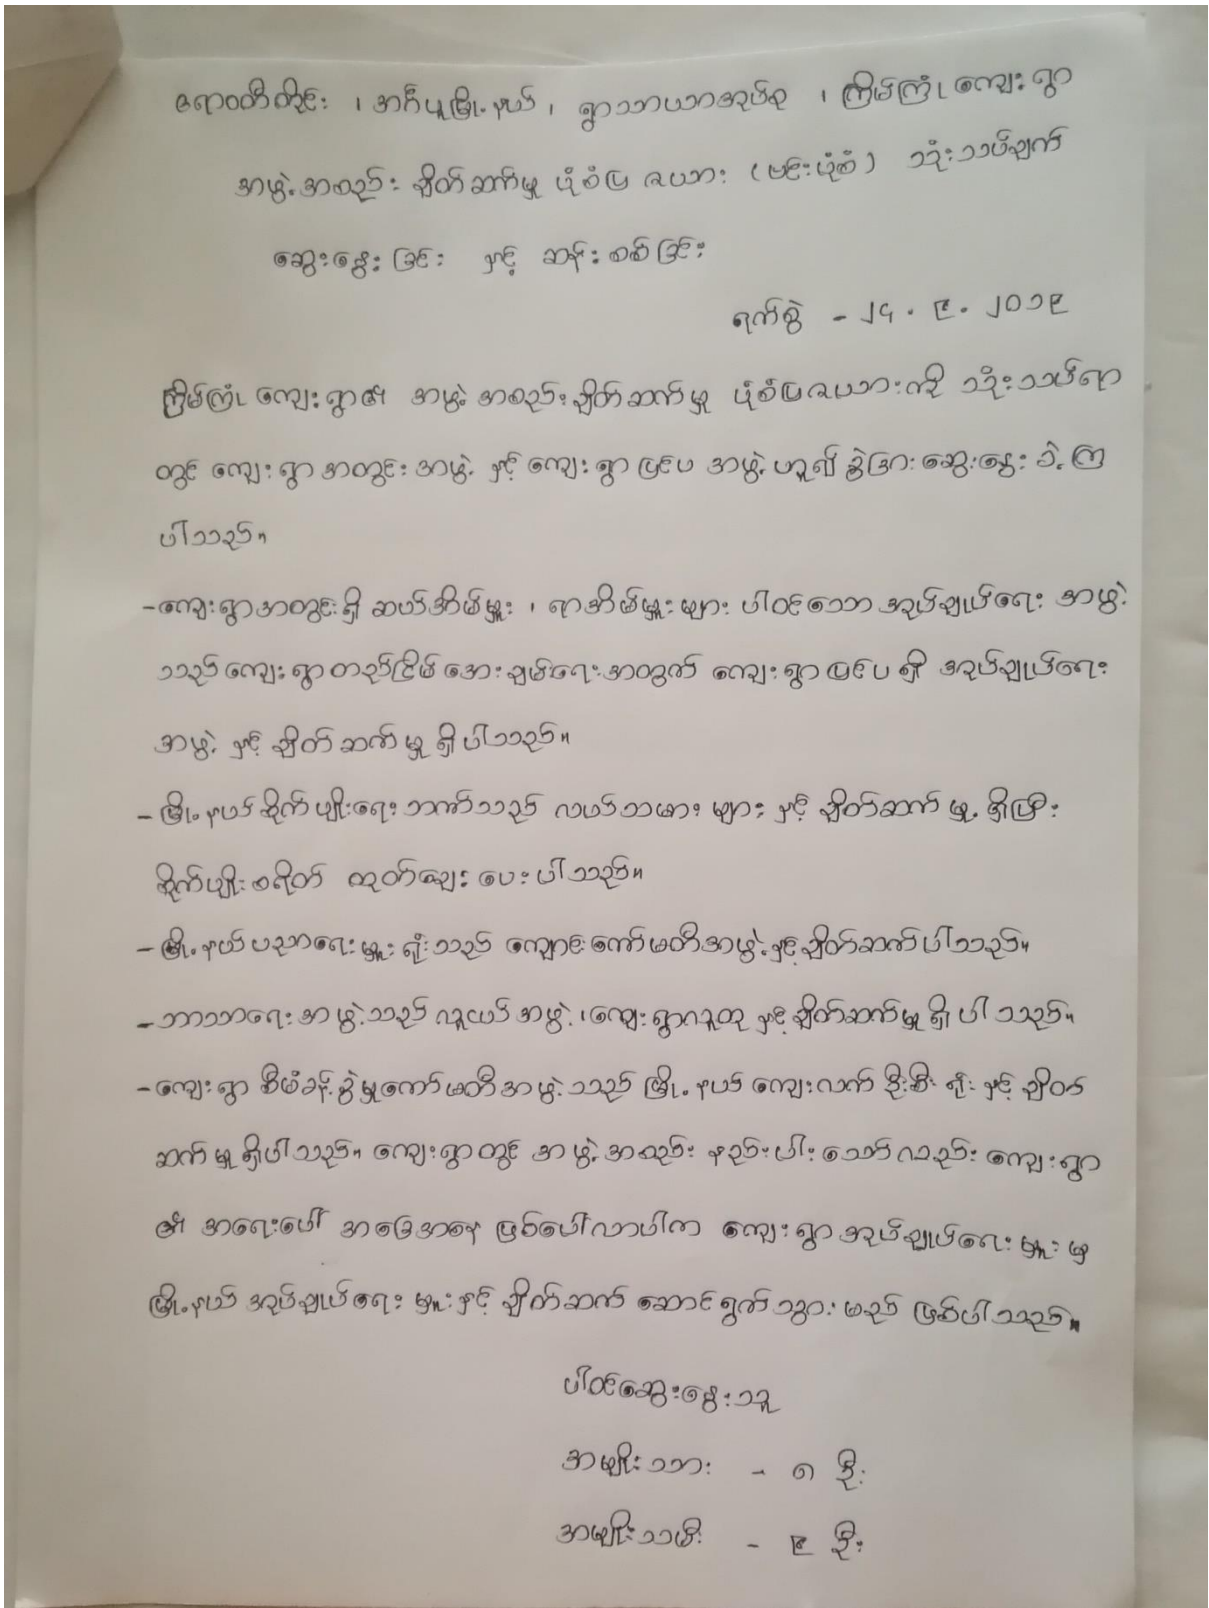 ဧရာဝတီတိုင်း ၊ အင်္ဂပူမြို့နယ် ၊ ရွာသာယာအုပ်စု ၊ ကြိမ်ကြုံ ကျေးရွာ
အဖွဲ့အစည်း ချိတ်ဆက်မှု ပုံစံပြ ဇယား (ဗင်းပုံစံ) သုံးသပ်ချက်
ဆွေးနွေးခြင်း နှင့် ဆန်းစစ်ခြင်း
ရက်စွဲ - ၂၄.၉.၂၀၁၉
ကြိမ်ကြုံ ကျေးရွာ၏ အဖွဲ့အစည်းချိတ်ဆက်မှု ပုံစံပြဇယားကို သုံးသပ်ရာ
တွင် ကျေးရွာအတွင်းအဖွဲ့ နှင့် ကျေးရွာပြင်ပ အဖွဲ့ဟူ၍ ခွဲခြားဆွေးနွေးခဲ့ကြ
ပါသည်။
-ကျေးရွာအတွင်းရှိ ဆယ်အိမ်မှူး ၊ ရာအိမ်မှူးများ ပါဝင်သော အုပ်ချုပ်ရေး အဖွဲ့
သည် ကျေးရွာတည်ငြိမ်အေးချမ်းရေးအတွက် ကျေးရွာပြင်ပရှိ အုပ်ချုပ်ရေး
အဖွဲ့ နှင့် ချိတ်ဆက်မှု ရှိပါသည်။
- မြို့နယ်စိုက်ပျိုးရေးဘဏ်သည် လယ်သမားများ နှင့် ချိတ်ဆက်မှု ရှိပြီး
စိုက်ပျိုးစရိတ် ထုတ်ချေးပေးပါသည်။
- မြို့နယ်ပညာရေးမှူးရုံးသည် ကျောင်းကော်မတီအဖွဲ့နှင့်ချိတ်ဆက်ပါသည်။
- ဘာသာရေးအဖွဲ့သည် လူငယ်အဖွဲ့၊ ကျေးရွာလူထု နှင့်ချိတ်ဆက်မှု ရှိပါသည်။
- ကျေးရွာ စီမံခန့်ခွဲမှုကော်မတီအဖွဲ့သည် မြို့နယ် ကျေးလက် ဦးစီးရုံး နှင့် ချိတ်
ဆက်မှု ရှိပါသည်။ ကျေးရွာတွင် အဖွဲ့အစည်း နည်းပါးသော်လည်း ကျေးရွာ
၏ အရေးပေါ် အခြေအနေ ဖြစ်ပေါ်လာပါက ကျေးရွာ အုပ်ချုပ်ရေးမှူးမှ
မြို့နယ် အုပ်ချုပ်ရေးမှူးနှင့် ချိတ်ဆက် ဆောင်ရွက်သွားမည် ဖြစ်ပါသည်။
ပါဝင်ဆွေးနွေးသူ
အမျိုးသား - ၈ ဦး
အမျိုးသမီး - ၉ ဦး